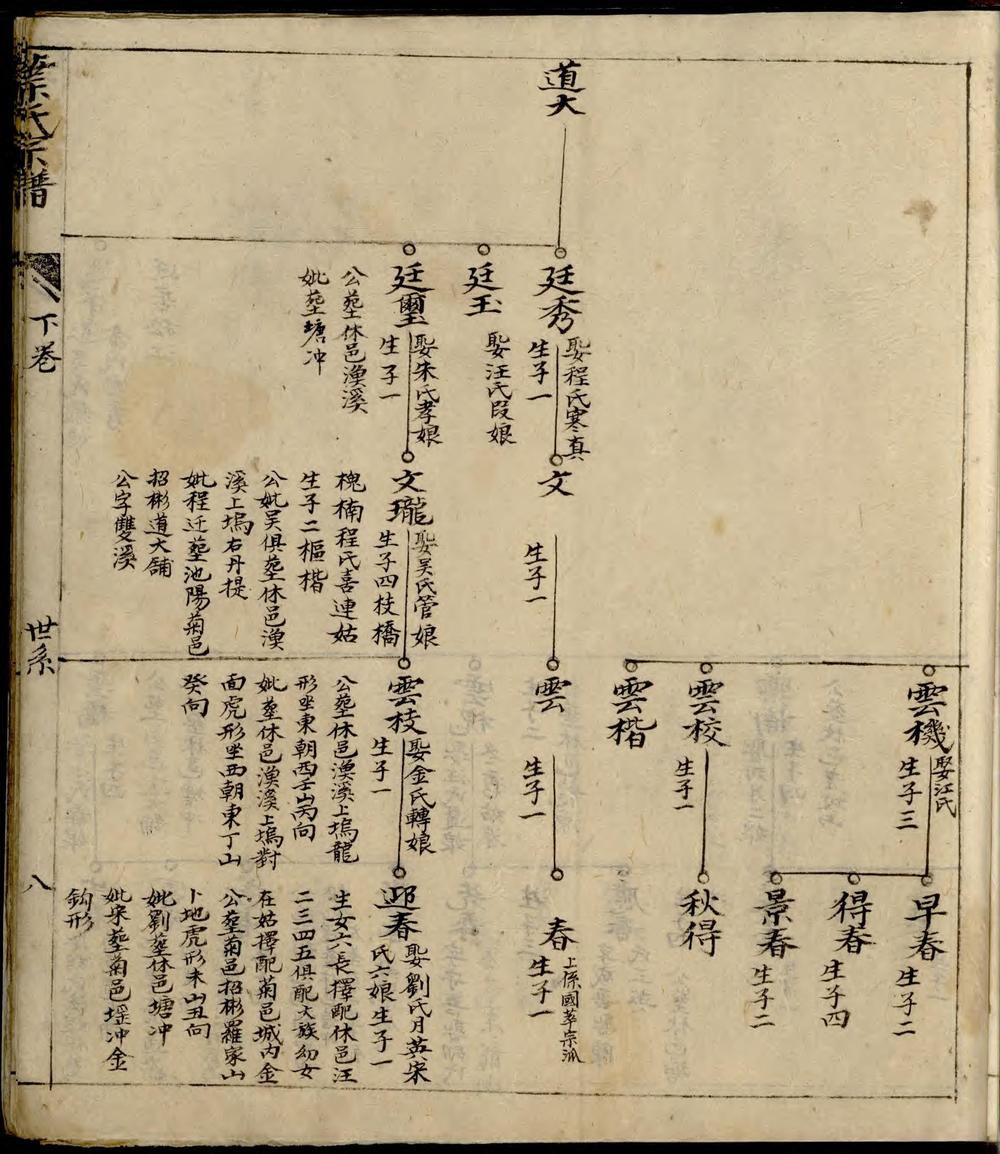 葉氏宗譜
下卷
世系
八
道大
廷秀
娶程氏寒真
生子一
廷玉
娶汪氏段娘
廷璽
娶朱氏孝娘
生子一
公塟休邑漁溪
妣塟塘冲
文
生子一
文瓏
娶吴氏管娘
生子四枝橋
槐楠程氏喜連姑
生子二樞楷
公妣吴俱塟休邑漁
溪上塢右丹提
妣程迁塟池陽菊邑
招彬道大舗
公字雙溪
雲機
娶江氏
生子三
雲校
生子一
雲楷
雲
生子一
雲枝
娶金氏轉娘
生子一
公塟休邑漁溪上塢龍
形坐東朝西壬山丙向
妣塟休邑漁溪上塢對
面虎形坐西朝東丁山
癸向
早春
生子二
得春
生子四
景春
生子二
秋得
春
上係國萃宗派
生子一
迎春
娶劉氏月英宋
氏六娘生子一
生女六長擇配休邑汪
二三四五俱配大族幼女
在姑擇配菊邑城内金
公塟菊邑招彬羅家山
卜地虎形未山丑向
妣劉塟休邑塘冲
妣宋塟菊邑塭冲金
鈎形